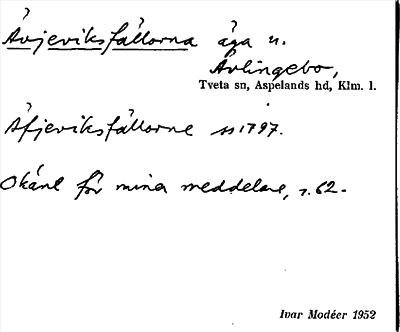 Åvjeviksfällorna äga u.
Åvlingebo,
Tveta sn, Aspelands hd, Klm. l.
Åfjeviksfällorne ss 1797.
Okänt för mina meddelare, s. 62.
Ivar Modéer 1952